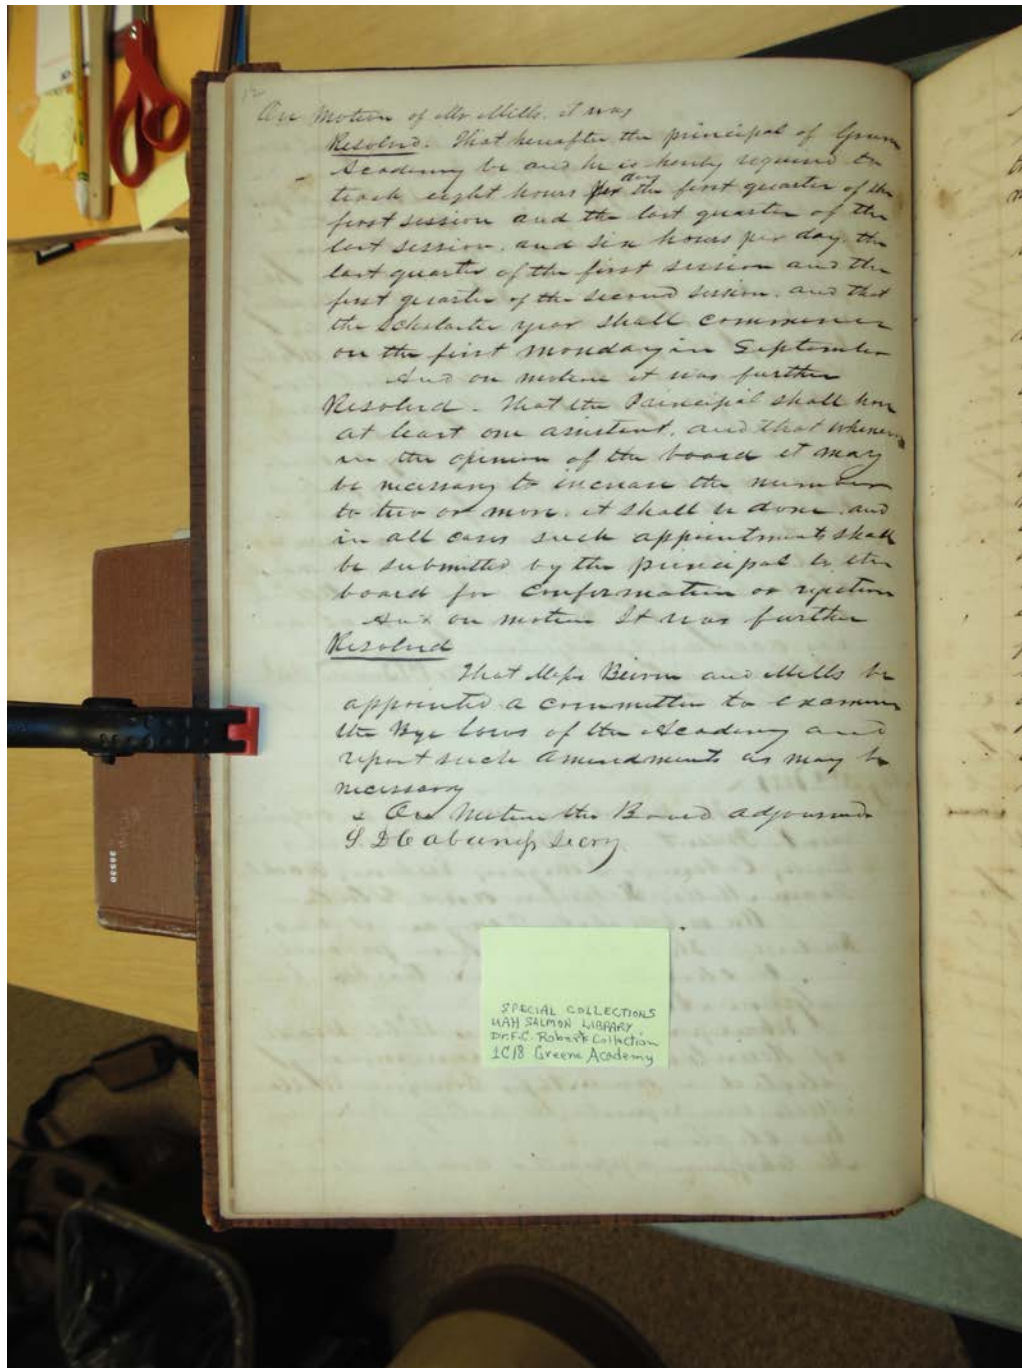 12
On Motion of Mr Mills, it was
Resolved. That hereafter the principal of Green
Academy be and he is hereby required to
teach eight hours per day the first quarter of the
first session and the last quarter of the
last session, and six hours per day the
last quarter of the first session and the
first quarter of the second session, and that
the Scholastic year shall commence
on the first Monday in September
And on motion it was further
Resolved - That the Principal shall have
at least one assistant, and that whenever
in the opinion of the board it may
be necessary to increase the number
to two or more, it shall be done, and
in all cases such appointments shall
be submitted by the principal to the
board for confirmation or rejection
And on motion It was further
Resolved
That Messrs Beirne and Mills be
appointed a committee to examine
the Bye laws of the Academy and
report such amendments as may be
necessary
On Motion the Board adjourned
S. D Cabaness Secry
SPECIAL COLLECTIONS
UAH SALMON LIBRARY
Dr. F.C. Roberts Collection
1C18 Greene Academy